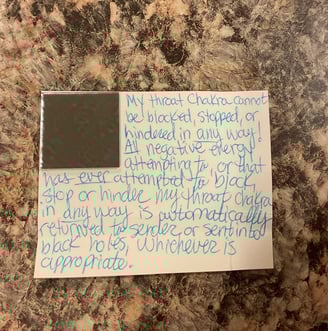 My throat Chakra cannot
be blocked, stopped, or
hindered in any way!
All negative energy
attempting to, or that
has ever attempted to block
stop or hinder my throat chakra
in any way is automatically
returned to sender or sent into
black holes, Whichever is
appropriate.